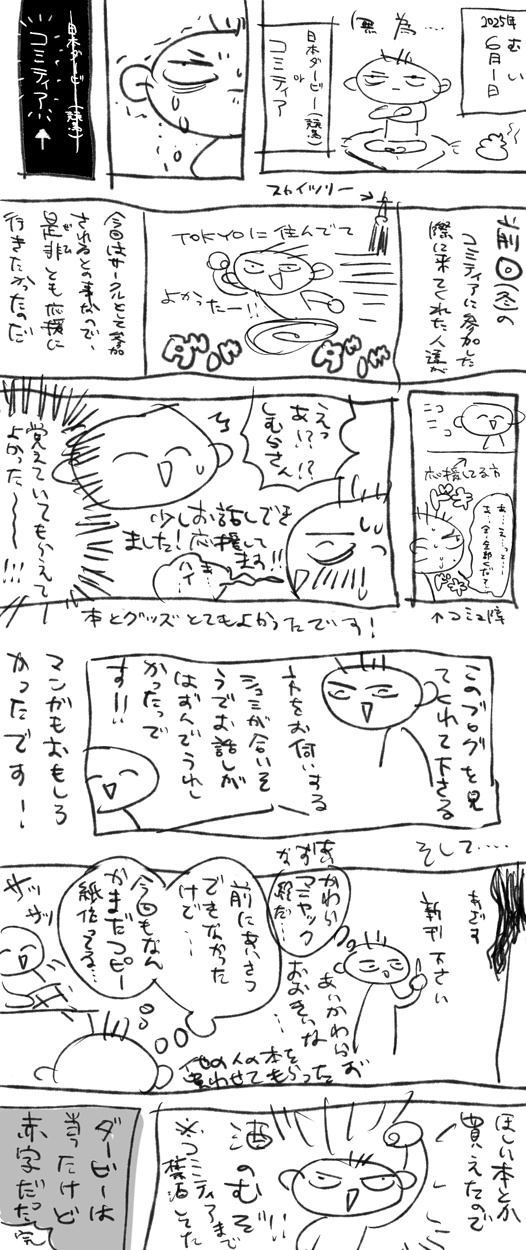 2025年
6月1日
むい
(無為…
日本ダービー(競馬)
or
コミティア
日本ダービー(競馬)
コミティア
↑
前回(冬)の
コミティアに参加した
際に来てくれた人達が
スカイツリー→
TOKYOに住んでて
よかったー!!
ダッ
ダッ
今回はサークルとして参加
されるとの事なので、
是非とも応援に
ぜひ
行きたかったのだ
ニコ
ニコ
応援してる方
↑コミュ障
えっ
あ!?!?
しむらさん
少しお話しでき
ました!応援して
ます!!
ハイ
覚えていてもらえて
よかった〜〜!!!
本とグッズとてもよかったです!
このブログを見
てくれて下さる
方をお伺いする
シュミが合いそ
うでお話しが
はずんでうれし
かったで
す!!
マンガもおもしろ
かったです!
そして…
あざす
新刊下さい
あいかわらず
マニヤック
あいかわらず
おおきいな
…
前にあいさつ
できなかった
けど…
今回もなん
かまだコピー
紙作ってる…
サッ
サッ
他の人の本を
買わせてもらった
ほしい本とか
買えたので
酒のむぞ!!
※コミティアまで
禁酒してた
ダービーは
当ったけど
赤字だった
完